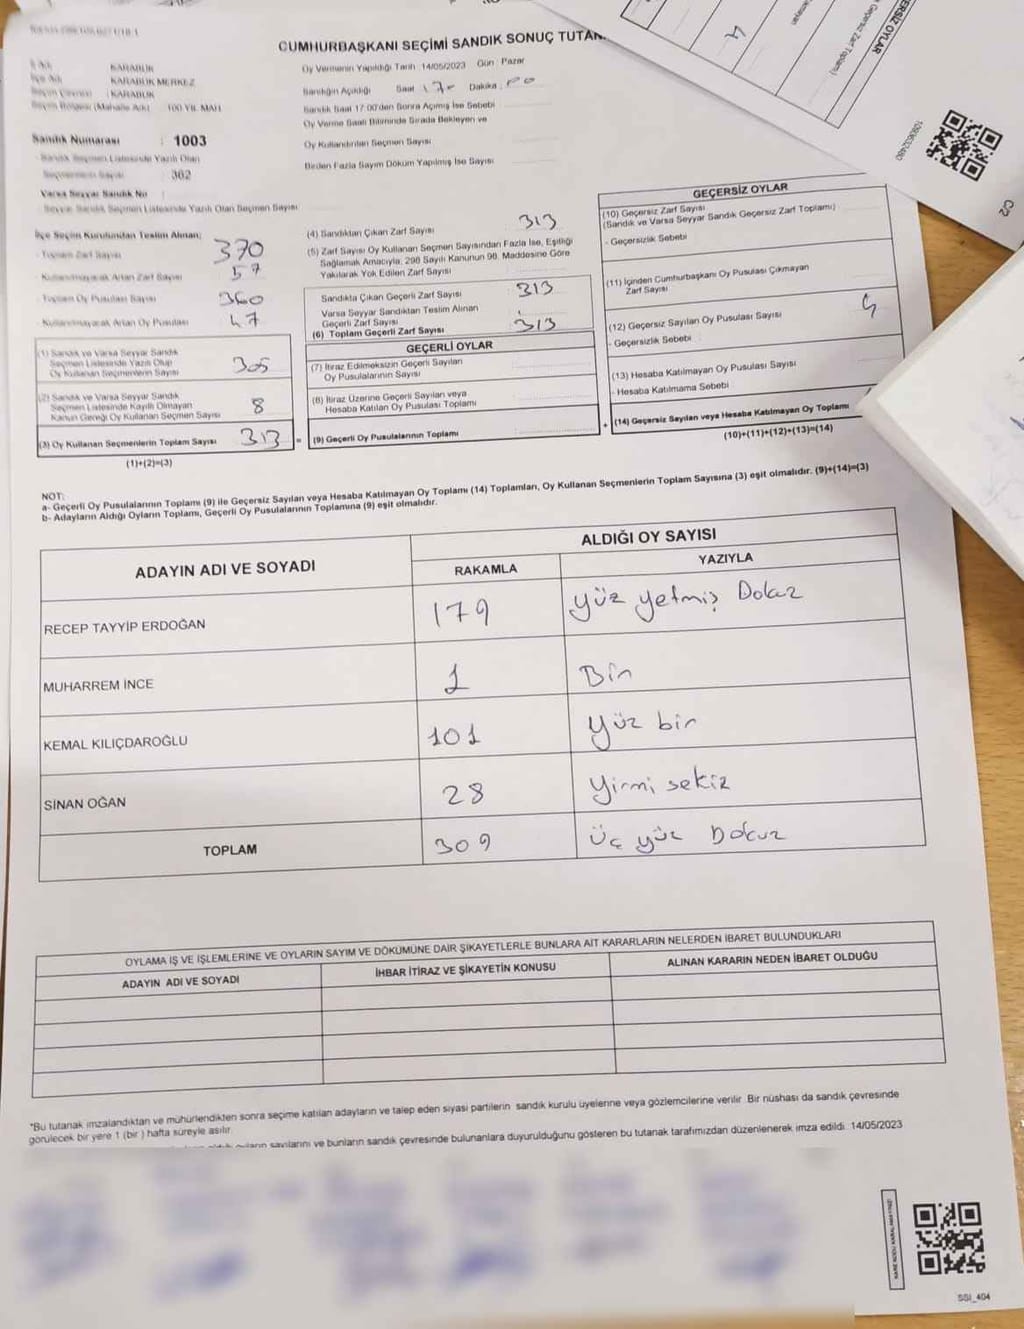 CUMHURBAŞKANI SEÇİMİ SANDIK SONUÇ TUTAN
Oy Vermenin Yapıldığı Tarih 14/05/2023 Gün : Pazar
Sandığın Açıldığı Saat 17 Dakika : 00
Sandık Saat 17:00'den Sonra Açımış İse Sebebi
Oy Verme Saati Bitiminde Sırada Bekleyen ve
Oy Kullandırılan Seçmen Sayısı
Birden Fazla Sayım Döküm Yapılmış İse Sayısı
İl Adı KARABÜK
İlçe Adı KARABÜK MERKEZ
Seçim Çevresi : KARABÜK
Seçim Bölgesi (Mahalle Adı) 100.YIL MAH.
Sandık Numarası : 1003
- Sandık Seçmen Listesinde Yazılı Olan
Seçmenlerin Sayısı : 362
Varsa Seyyar Sandık No
- Seyyar Sandık Seçmen Listesinde Yazılı Olan Seçmen Sayısı
İlçe Seçim Kurulundan Teslim Alınan;
- Toplam Zarf Sayısı 370
- Kullanılmayacak Artan Zarf Sayısı 57
- Toplam Oy Pusulası Sayısı 360
- Kullanılmayacak Artan Oy Pusulası 47
(1) Sandık ve Varsa Seyyar Sandık
Seçmen Listesinde Yazılı Olup
Oy Kullanan Seçmenlerin Sayısı 305
(2) Sandık ve Varsa Seyyar Sandık
Seçmen Listesinde Kayıtlı Olmayan
Kanun Gereği Oy Kullanan Seçmen Sayısı 8
(3) Oy Kullanan Seçmenlerin Toplam Sayısı 313
(1)+(2)=(3)
(4) Sandıktan Çıkan Zarf Sayısı 313
(5) Zarf Sayısı Oy Kullanan Seçmen Sayısından Fazla İse, Eşitliği
Sağlamak Amacıyla, 298 Sayılı Kanunun 98. Maddesine Göre
Yakılarak Yok Edilen Zarf Sayısı
Sandıkta Çıkan Geçerli Zarf Sayısı : 313
Varsa Seyyar Sandıktan Teslim Alınan
Geçerli Zarf Sayısı
(6) Toplam Geçerli Zarf Sayısı 313
GEÇERLİ OYLAR
(7) İtiraz Edilmeksizin Geçerli Sayılan
Oy Pusulalarının Sayısı
(8) İtiraz Üzerine Geçerli Sayılan veya
Hesaba Katılan Oy Pusulası Toplamı
= (9) Geçerli Oy Pusulalarının Toplamı
GEÇERSİZ OYLAR
(10) Geçersiz Zarf Sayısı
(Sandık ve Varsa Seyyar Sandık Geçersiz Zarf Toplamı)
- Geçersizlik Sebebi
(11) İçinden Cumhurbaşkanı Oy Pusulası Çıkmayan
Zarf Sayısı
(12) Geçersiz Sayılan Oy Pusulası Sayısı 4
- Geçersizlik Sebebi
(13) Hesaba Katılmayan Oy Pusulası Sayısı
- Hesaba Katılmama Sebebi
+ (14) Geçersiz Sayılan veya Hesaba Katılmayan Oy Toplamı
(10)+(11)+(12)+(13)=(14)
NOT:
a- Geçerli Oy Pusulalarının Toplamı (9) ile Geçersiz Sayılan veya Hesaba Katılmayan Oy Toplamı (14) Toplamları, Oy Kullanan Seçmenlerin Toplam Sayısına (3) eşit olmalıdır. (9)+(14)=(3)
b- Adayların Aldığı Oyların Toplamı, Geçerli Oy Pusulalarının Toplamına (9) eşit olmalıdır.
ADAYIN ADI VE SOYADI
ALDIĞI OY SAYISI
RAKAMLA YAZIYLA
RECEP TAYYİP ERDOĞAN 179 yüz yetmiş Dokuz
MUHARREM İNCE 1 Bir
KEMAL KILIÇDAROĞLU 101 yüz bir
SİNAN OĞAN 28 yirmi sekiz
TOPLAM 309 üç yüz Dokuz
OYLAMA İŞ VE İŞLEMLERİNE VE OYLARIN SAYIM VE DÖKÜMÜNE DAİR ŞİKAYETLERLE BUNLARA AİT KARARLARIN NELERDEN İBARET BULUNDUKLARI
ADAYIN ADI VE SOYADI İHBAR İTİRAZ VE ŞİKAYETİN KONUSU ALINAN KARARIN NEDEN İBARET OLDUĞU
*Bu tutanak imzalandıktan ve mühürlendikten sonra seçime katılan adayların ve talep eden siyasi partilerin sandık kurulu üyelerine veya gözlemcilerine verilir. Bir nüshası da sandık çevresinde
görülecek bir yere 1 (bir) hafta süreyle asılır.
sayılarını ve bunların sandık çevresinde bulunanlara duyurulduğunu gösteren bu tutanak tarafımızdan düzenlenerek imza edildi. 14/05/2023
KARE KODU KARALAMAYINIZ!
SSI_404
ERSİZ OYLAR
Geçersiz Zarf Toplamı)
kmayan
4
1093632480
C/2